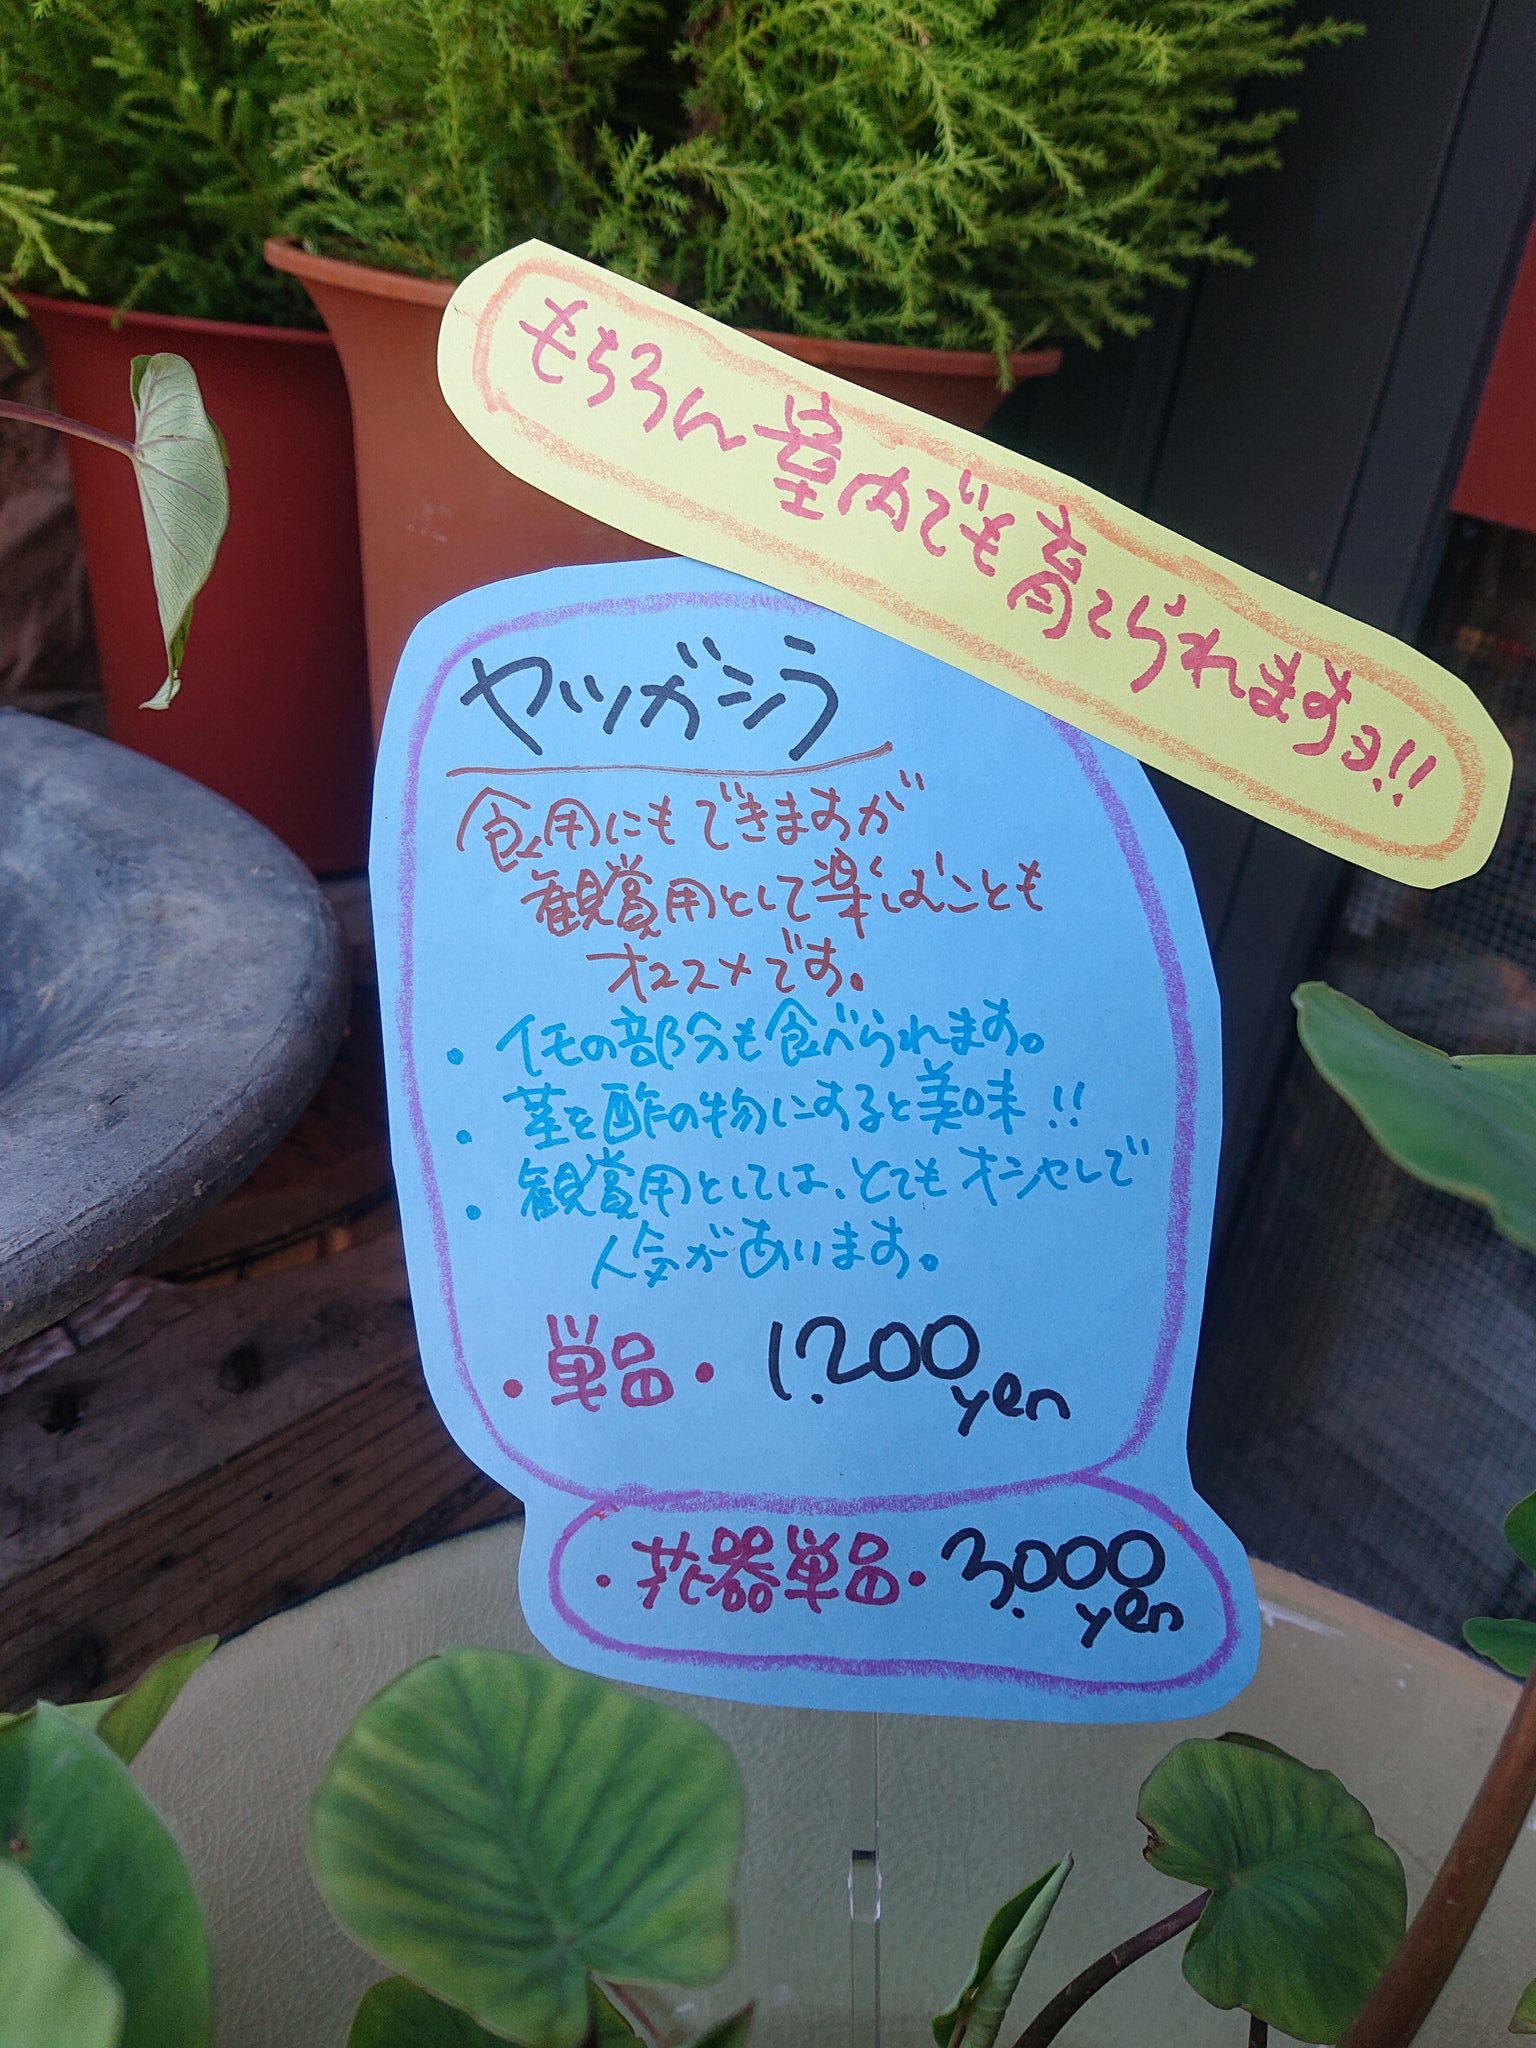 もちろん室内でも育てられますヨ!!
ヤツガシラ
食用にもできますが
観賞用として楽しむことも
オススメです。
・イモの部分も食べられます。
・茎を酢の物にすると美味!!
・観賞用としては、とてもオシャレで
人気があります。
・単品・ 1.200 yen
・花器単品・ 3.000 yen